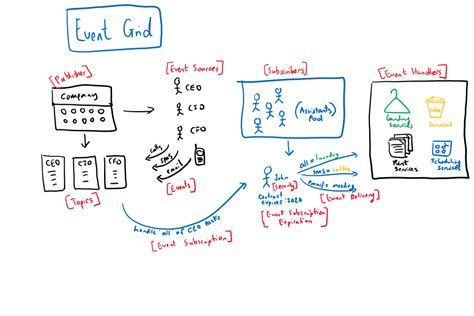 Event Grid
[Publisher]
Company
[Event Sources]
CEO
CIO
CFO
[Subscribers]
(Assistants)
Pool
[Event Handlers]
Laundry
Services
Print
Services
Scheduling
Services
CEO
CIO
CFO
[Topics]
calls
sms
email
[Events]
John
[Security]
Contract
expires: 2020
[Event Subscription
Expiration]
call = laundry
sms = coffee
email = meeting
[Event Delivery]
handle all of CEO tasks
[Event Subscription]